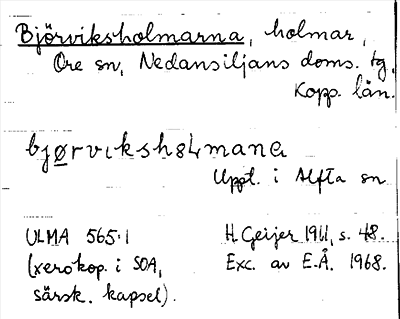 Björviksholmarna, holmar,
Ore sn, Nedansiljans doms. tg,
Kopp. län.
Uppt. i Alfta sn
ULMA 565:1
(xerokop. i SOA,
särsk. kapsel).
H. Geijer 1911, s. 48.
Exc. av E.Å. 1968.